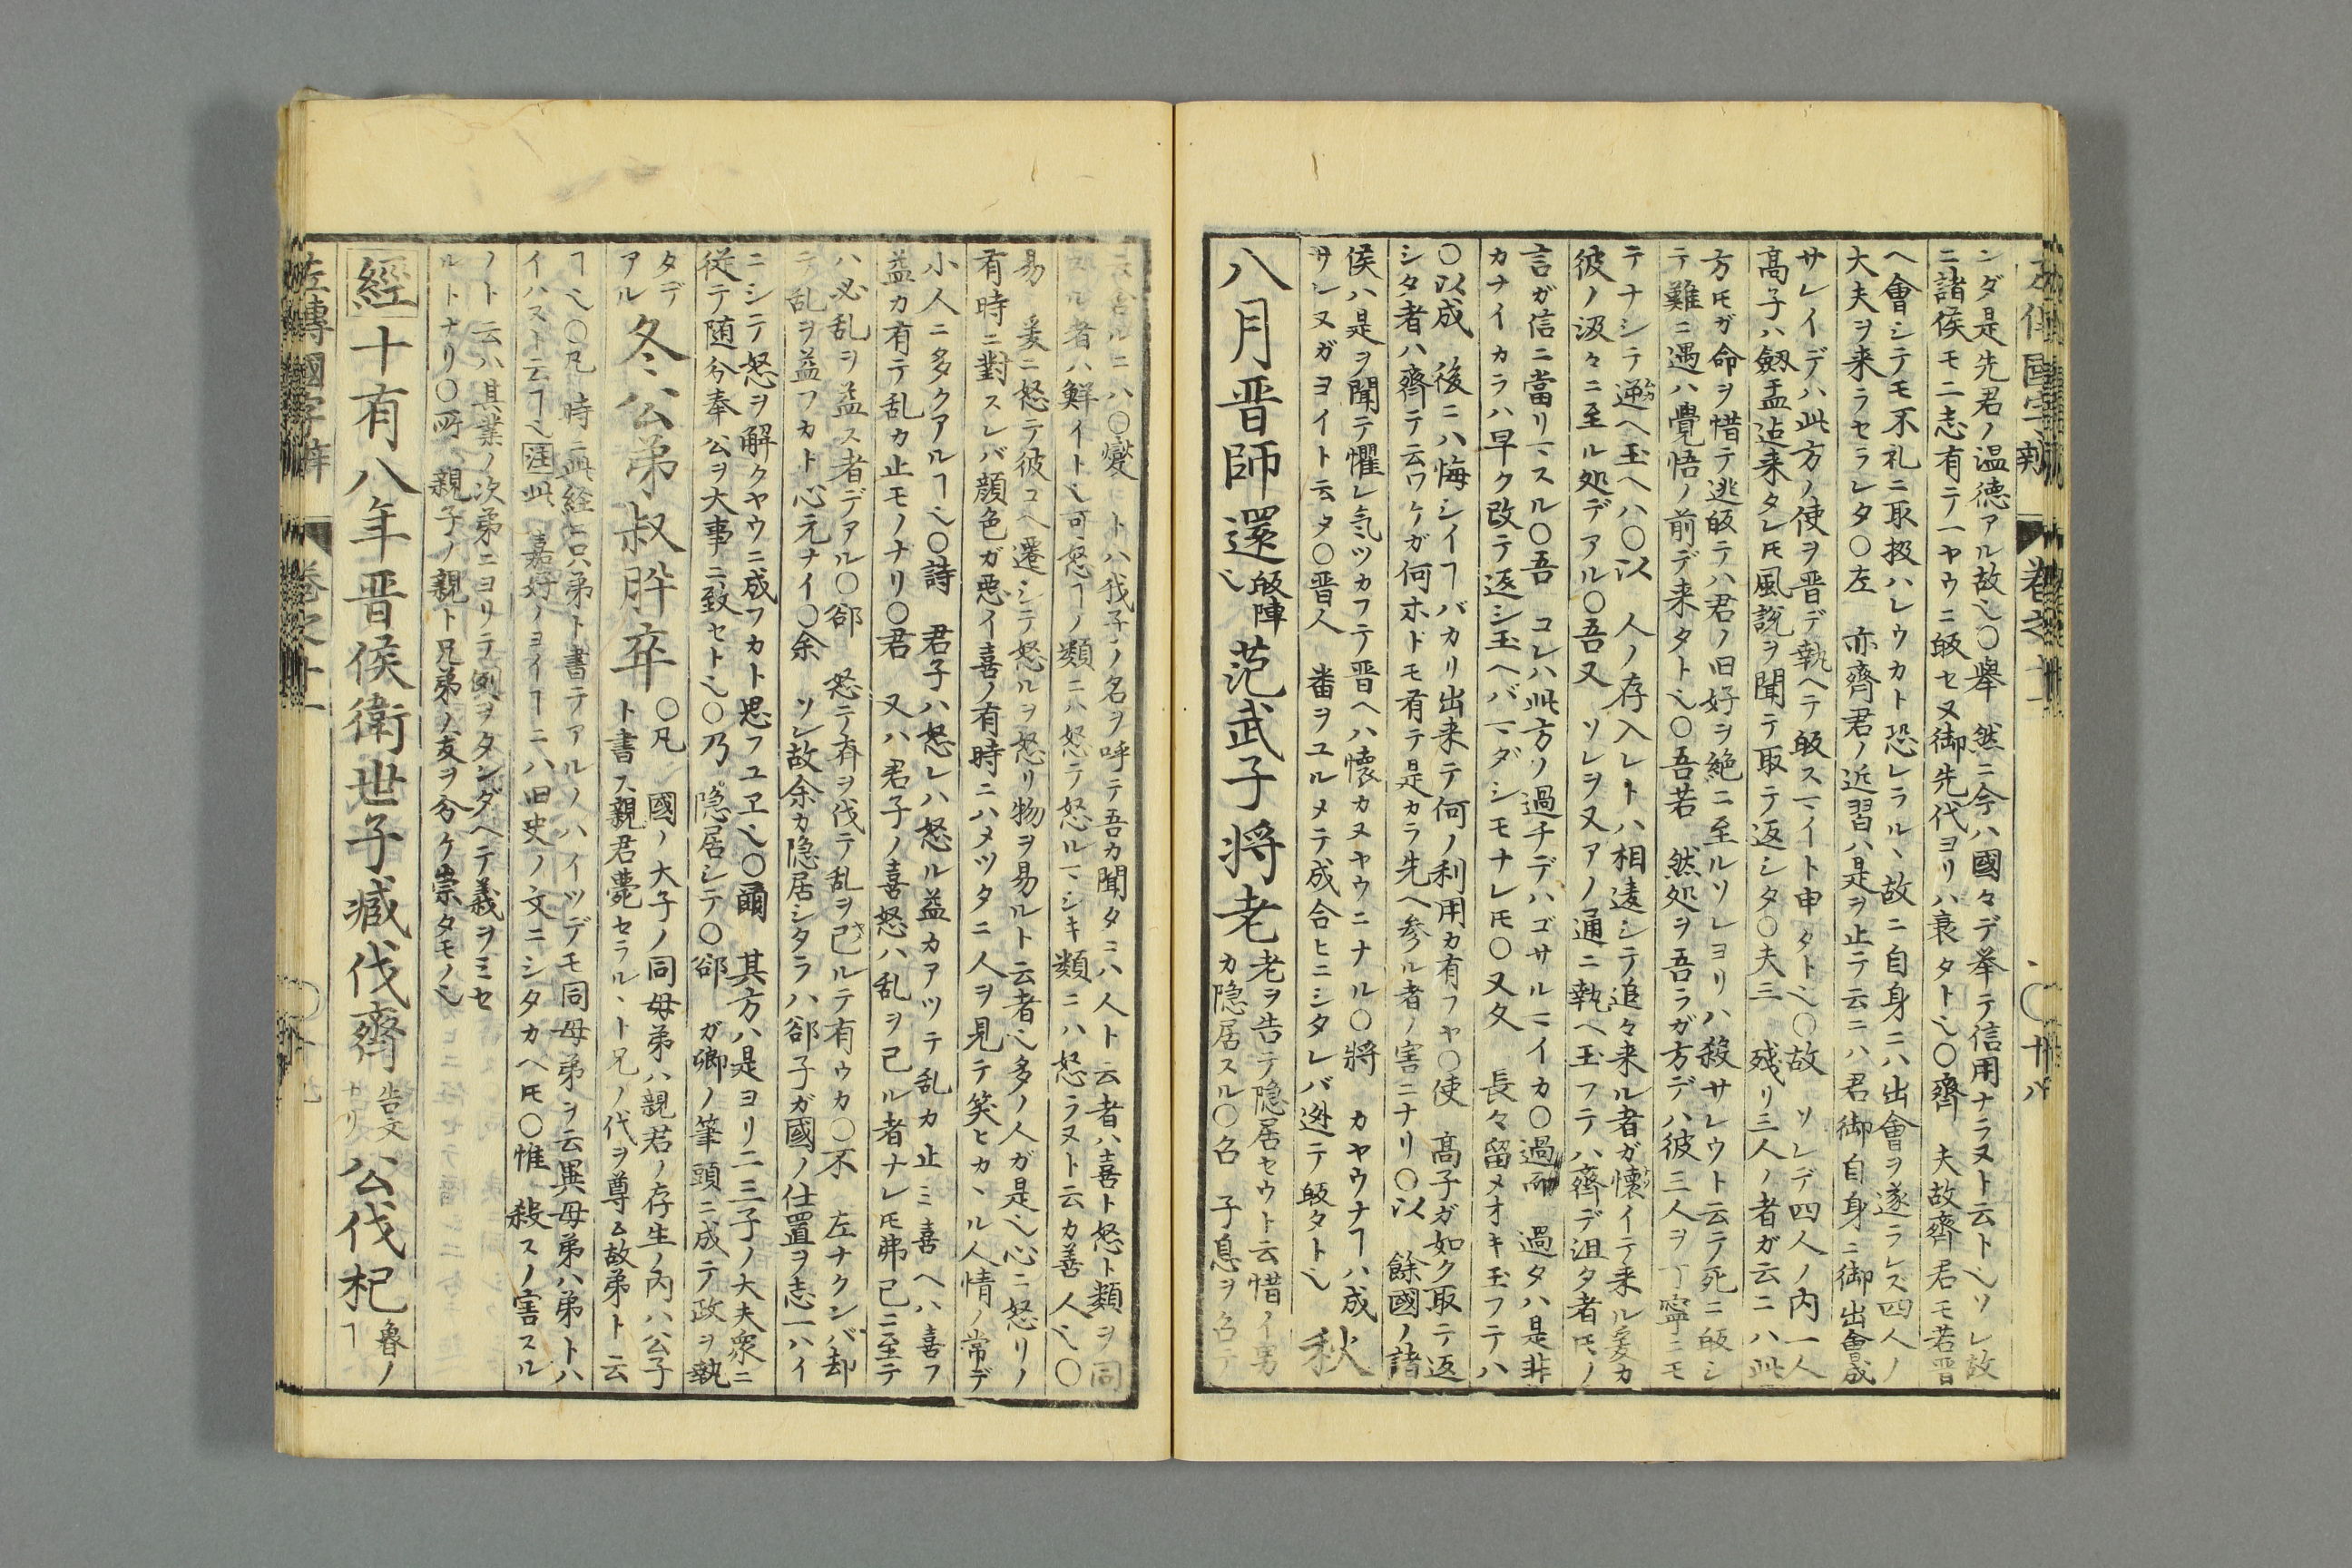 左傳國字辨　卷之十一　〇十八
シダ是先君ノ温徳アル故也〇擧　然ニ今ハ國々デ挙テ信用ナラヌト云ト也ソレ故
ニ諸侯モ二志有テ一ヤウニ皈セヌ御先代ヨリハ衰タト也〇齊　夫故齊君モ若晋
ヘ會シテモ不礼ニ取扱ハレウカト恐レラルヽ故ニ自身ニハ出會ヲ遂ラレズ四人ノ
大夫ヲ来ラセラレタ〇左　亦齊君ノ近習ハ是ヲ止テ云ニハ君御自身ニ御出會成
サレイデハ此方ノ使ヲ晋デ執ヘテ皈スマイト申タト也〇故　ソレデ四人ノ内一人
髙子ハ斂盂迠来タレ𪜈風説ヲ聞テ取テ返シタ〇夫三　残リ三人ノ者ガ云ニハ此
方𪜈ガ命ヲ惜テ逃皈テハ君ノ旧好ヲ絶ニ至ルソレヨリハ殺サレウト云テ死ニ皈シ
テ難ニ遇ハ覺悟ノ前デ来タト也〇吾若　然処ヲ吾ラガ方デハ彼三人ヲ丁寧ニモ
テナシテ逆ヘ玉ヘハ〇以　人ノ存入レトハ相違シテ追々来ル者ガ懐イテ来ル爰カ
彼ノ汲々ニ至ル処デアル〇吾又　ソレヲ又アノ通ニ執ヘ玉フテハ齊デ沮タ者𪜈ノ
言ガ信ニ當リマスル〇吾　コレハ此方ソ過チデハゴサルニイカ〇過而　過タハ是非
カナイカラハ早ク改テ返シ玉ヘバマダシモナレ𪜈〇又久　長々留メオキ玉フテハ
〇以成　後ニハ悔シイヿバカリ出来テ何ノ利用カ有フヤ〇使　髙子ガ如ク取テ返
シタ者ハ齊テ云ワケガ何ホドモ有テ是カラ先ヘ参ル者ノ害ニナリ〇以　餘國ノ諸
侯ハ是ヲ聞テ懼レ気ツカフテ晋ヘハ懐カヌヤウニナル〇将　カヤウナヿハ成
サレヌガヨイト云タ〇晋人　番ヲユルメテ成合ヒニシタレバ迯テ皈タト也　秋
八月晋師還　皈陣也　范武子将老　老ヲ告テ隠居セウト云惜ノイ男カ隠居スル〇召　子息ヲ召テ
云ルニハ〇燮　トハ我子ノ名ヲ呼テ吾カ聞タニハ人ト云者ハ喜ト怒ト類ヲ同
スル者ハ鮮イト也可怒ヿノ類ニハ怒テ怒ルマシキ類ニハ怒ラヌト云カ善人也〇
易　爰ニ怒テ彼コヘ遷シテ怒ルヲ怒リ物ヲ易ルト云者也多ノ人ガ是也心ニ怒リノ
有時ニ對スレバ顔色ガ悪イ喜ノ有時ニハメツタニ人ヲ見テ笑ヒカヽル人情ノ常デ
小人ニ多クアルヿ也〇詩　君子ハ怒レハ怒ル益カアツテ乱カ止ミ喜ヘハ喜フ
益カ有テ乱カ止モノナリ〇君　又ハ君子ノ喜怒ハ乱ヲ已ル者ナレ𪜈弗已ニ至テ
ハ必乱ヲ益ス者デアル〇郤　怒テ斉ヲ伐テ乱ヲ已ルテ有ウカ〇不　左ナクンバ却
テ乱ヲ益フカト心元ナイ〇余　ソレ故余カ隠居シタラハ郤子ガ國ノ仕置ヲ志一ハイ
ニシテ怒ヲ解クヤウニ成フカト思フユヱ也〇爾　其方ハ是ヨリ二三子ノ大夫衆ニ
従テ随分奉公ヲ大事ニ致セト也〇乃　隠居シテ〇郤　ガ卿ノ筆頭ニ成テ政ヲ執
タデアル　冬公弟叔肹卒　〇凡　國ノ大子ノ同母弟ハ親君ノ存生ノ内ハ公子ト書ス親君薨セラルヽト兄ノ代ヲ尊ム故弟ト云
ヿ也〇凡　時ニ此経ニ只弟ト書テアルノハイツデモ同母弟ヲ云異母弟ハ弟トハ
イハヌト云ヿ也注此　嘉好ノヨイヿニハ旧史ノ文ニシタカヘ𪜈〇惟　殺スノ害スル
ノト云ハ其業ノ次弟ニヨリテ例ヲタンダヘテ義ヲミセ
ルトナリ〇所　親子ノ親ト兄弟ノ友ヲ分ケ崇タモノ也
經十有八年晋侯衛世子臧伐齊　告文ナリ　公伐杞　魯ノヿ
左傳國字辨　卷之十一